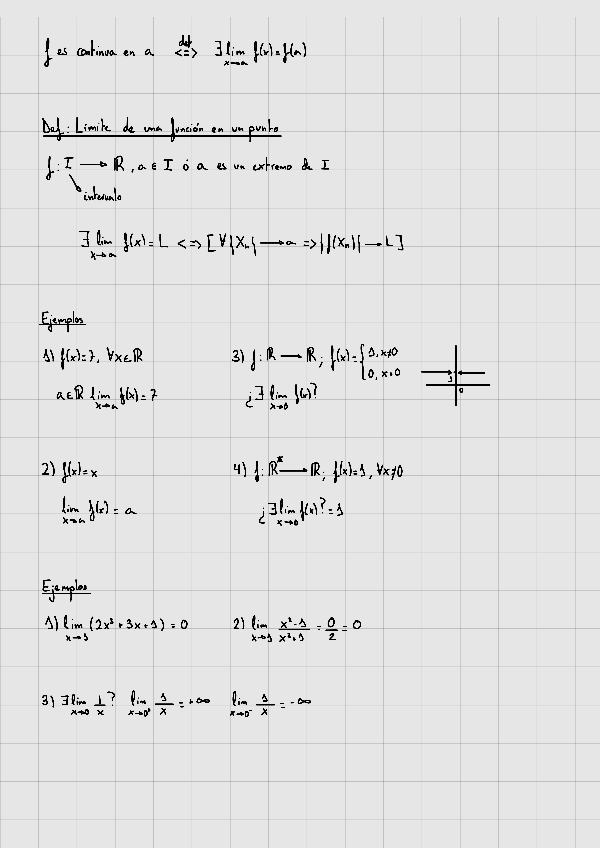 f es continua en a <=>(def) ∃ lim_{x→a} f(x) = f(a)
Def: Límite de una función en un punto
f: I → ℝ, a ∈ I ó a es un extremo de I
intervalo
∃ lim_{x→a} f(x) = L <=> [∀{Xn} → a => {f(Xn)} → L]
Ejemplos
1) f(x) = 7, ∀x ∈ ℝ
a ∈ ℝ lim_{x→a} f(x) = 7
3) f: ℝ → ℝ; f(x) = { 1, x≠0
0, x=0
¿∃ lim_{x→0} f(x)?
1
0
2) f(x) = x
lim_{x→a} f(x) = a
4) f: ℝ* → ℝ; f(x) = 1, ∀x≠0
¿∃ lim_{x→0} f(x)? = 1
Ejemplos
1) lim_{x→1} (2x³ + 3x + 1) = 0
2) lim_{x→1} (x² - 1)/(x² + 1) = 0/2 = 0
3) ∃ lim_{x→0} 1/x? lim_{x→0⁺} 1/x = +∞ lim_{x→0⁻} 1/x = -∞